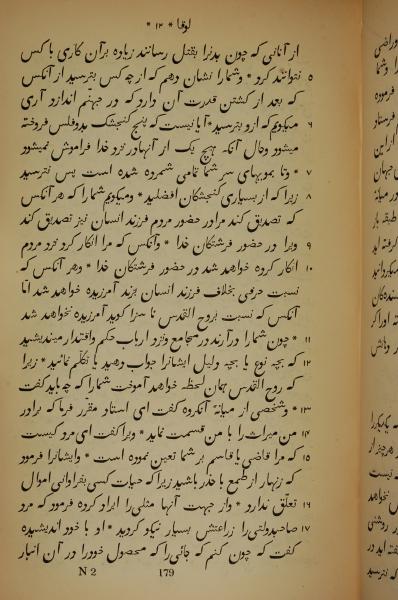 لوقا * ۱۲ *
از آنانی که چون بدنرا بقتل رسانند زیاده برآن کاری با کس
۵ نتوانند کرد * وشمارا نشان دهم که از چه کس بترسید از آنکس
که بعد از کشتن قدرت آن دارد که در جهنّم اندازد آری
۶ میگویم که ازو بترسید * آیا نیست که پنج گنجشک بدوفلس فروخته
میشود وحال آنکه هیچ یک از آنهادر نزد خدا فراموش نمیشود
۷ * وتا مویهای سر شما تمامی شمرده شده است پس نترسید
۸ زیرا که از بسیاری گنجشکان افضلید * ومیگویم شمارا که هر آنکس
که تصدیق کند مرادر حضور مردم فرزند انسان نیز تصدیق کند
۹ ویرا در حضور فرشتگان خدا * وآنکس که مرا انکار کرد نزد مردم
۱۰ انکار کرده خواهد شد در حضور فرشتگان خدا * وهر آنکس که
نسبت حرفی بخلاف فرزند انسان بزند آمرزیده خواهد شد امّا
آنکس که نسبت بروح القدس نا سزا گوید آمرزیده نخواهد شد
۱۱ * چون شمارا درآرند در مجامع ونزد ارباب حکم واقتدار میندیشید
۱۲ که بچه نوع یا بچه دلیل ایشانرا جواب دهید یا تکلّم نمائید * زیرا
که روح القدس همان لحظه خواهد آموخت شمارا که چه باید گفت
۱۳ * وشخصی از میانهٔ آنگروه گفت ای استاد مقرّر فرما که برادر
۱۴ من میراث را با من قسمت نماید * ویرا گفت ای مرد کیست
۱۵ که مرا قاضی یا قاسم بر شما تعین نموده است * وایشانرا فرمود
که زنهار از طمع با حذر باشید زیرا که حیات کسی بفراوانی اموال
۱۶ تعلّق ندارد * واز جهت آنها مثلی را ایراد کرده فرمود که مرد
۱۷ صاحبدولتی را زراعتش بسیار نیکو گردید * او با خود اندیشیده
گفت که چون کنم که جائی را که محصول خودرا در آن انبار
N 2 179